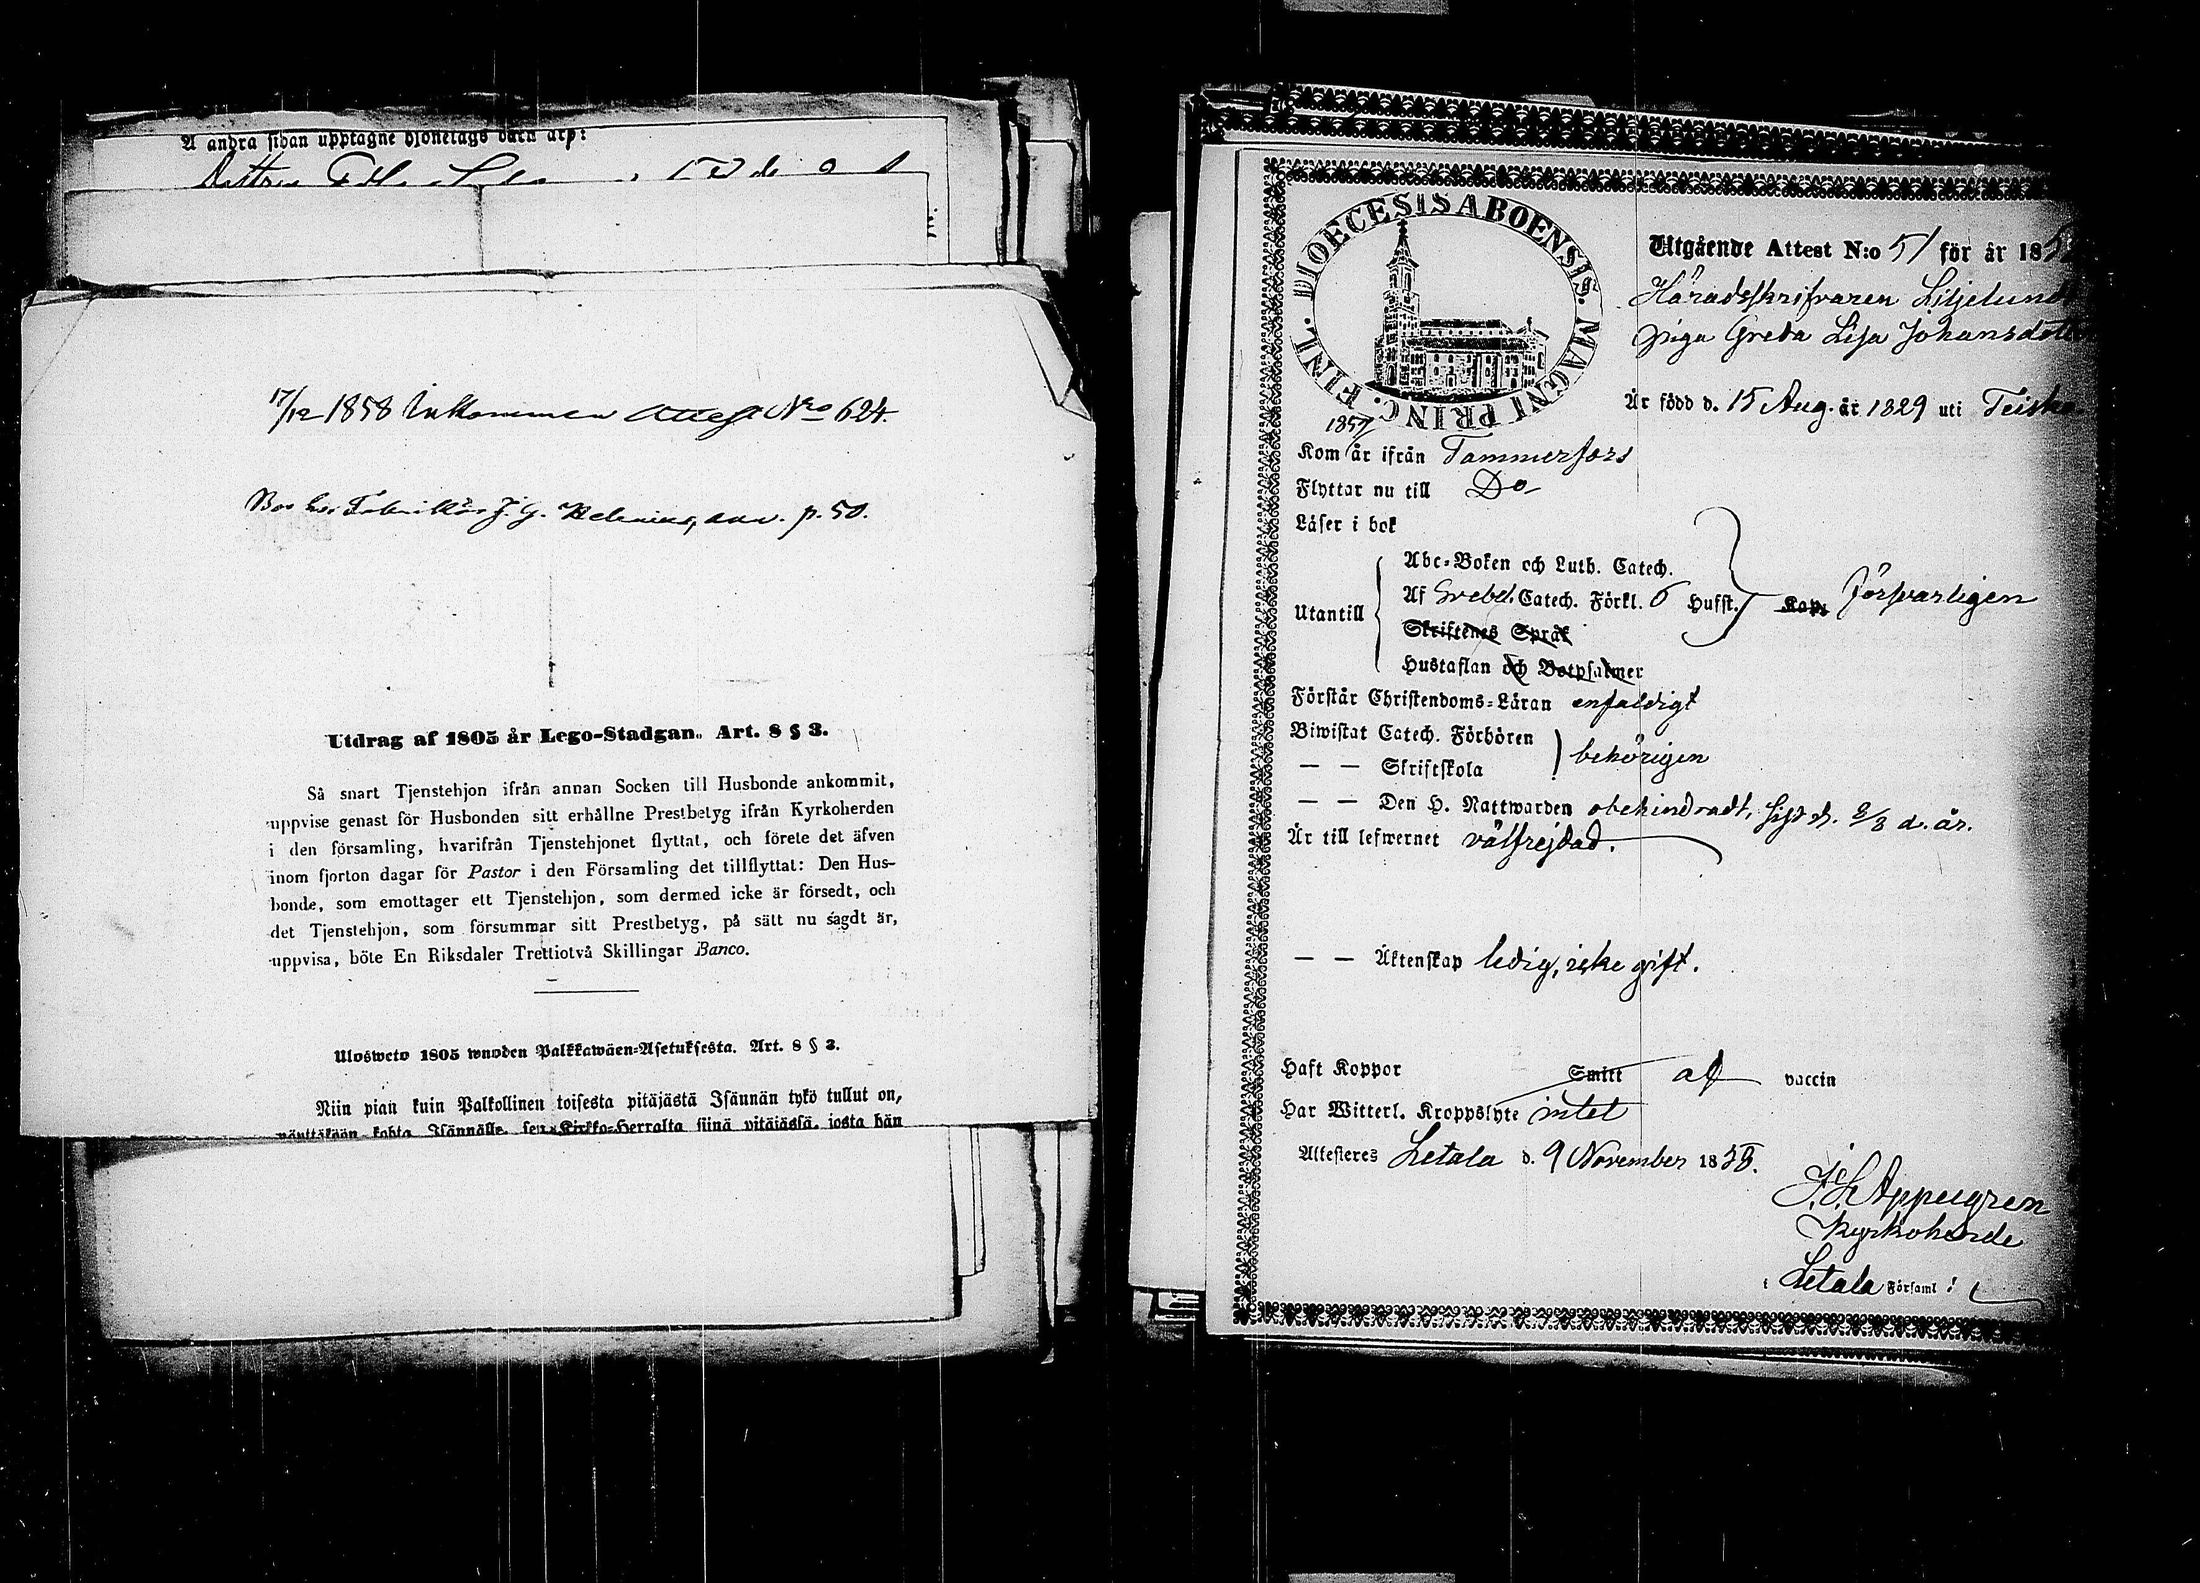 Å andra sidan upptagne hjonelags barn äro:
17/12 1858 Inkommen Attest No 624.
Bor hos Fabrikör J. G. Helenius, p. 50.
Utdrag af 1805 år Lego-Stadgan. Art. 8 § 3.
Så snart Tjenstehjon ifrån annan Socken till Husbonde ankommit,
uppvise genast för Husbonden sitt erhållne Prestbetyg ifrån Kyrkoherden
i den församling, hvarifrån Tjenstehjonet flyttat, och förete det äfven
inom fjorton dagar för Pastor i den Församling det tillflyttat: Den Hus-
bonde, som emottager ett Tjenstehjon, som dermed icke är försedt, och
det Tjenstehjon, som försummar sitt Prestbetyg, på sätt nu sagdt är,
uppvisa, böte En Riksdaler Trettiotvå Skillingar Banco.
Ulosweto 1805 wuoden Palkkawäen-Asetuksesta. Art. 8 § 3.
Niin pian kuin Palkollinen toisesta pitäjästä Isännän tykö tullut on,
näyttäkään kohta Isännälle, sen Kirkko-Herralta siinä pitäjässä, josta hän
FINL. DIOECESIS ABOENSIS. MAGNI PRINC.
Utgående Attest N:o 51 för år 185
Häradsskrifvaren Liljelund
piga Greta Lisa Johansdot
Är född d. 15 Aug. år 1829 uti Teisko
1857
Kom år ifrån Tammerfors
Flyttar nu till Do
Läser i bok
Utantill
Abc-Boken och Luth. Catech.
Af Svebel. Catech. Förkl. 6 Hufst. Kap. försvarligen
Skriftenes Språk
Hustaflan och Botpsalmer
Förstår Christendoms-Läran enfaldigt
Biwistat Catech. Förhören
— — Skriftskola behörigen
— — Den H. Nattwarden obehindradt, sist d. 8/8 d. år.
Är till lefwernet välfrejdad.
— — Äktenskap ledig, icke gift.
Haft Koppor Smitt af vaccin
Har Witterl. Kroppslyte intet
Attesteres Letala d. 9 November 1858.
J. L. Appelgren
Kyrkoherde
i Letala Församl: